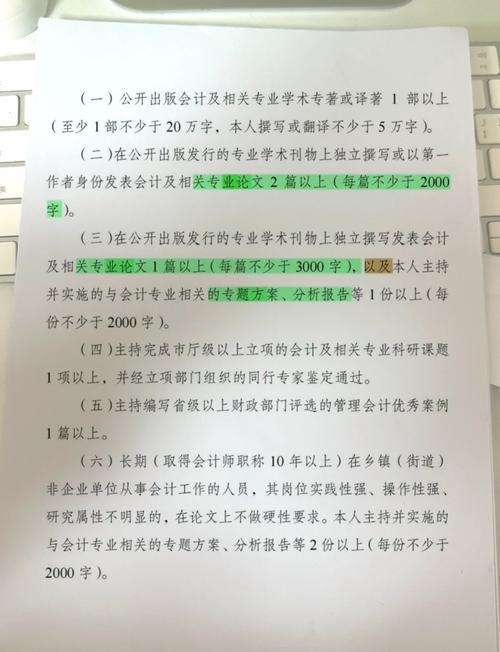 （一）公开出版会计及相关专业学术专著或译著 1 部以上
（至少1部不少于20万字，本人撰写或翻译不少于5万字）。
（二）在公开出版发行的专业学术刊物上独立撰写或以第一
作者身份发表会计及相关专业论文2篇以上（每篇不少于2000
字）。
（三）在公开出版发行的专业学术刊物上独立撰写发表会计
及相关专业论文1篇以上（每篇不少于3000字），以及本人主持
并实施的与会计专业相关的专题方案、分析报告等1份以上（每
份不少于2000字）。
（四）主持完成市厅级以上立项的会计及相关专业科研课题
1项以上，并经立项部门组织的同行专家鉴定通过。
（五）主持编写省级以上财政部门评选的管理会计优秀案例
1篇以上。
（六）长期（取得会计师职称10年以上）在乡镇（街道）
非企业单位从事会计工作的人员，其岗位实践性强、操作性强、
研究属性不明显的，在论文上不做硬性要求。本人主持并实施的
与会计专业相关的专题方案、分析报告等2份以上（每份不少于
2000字）。